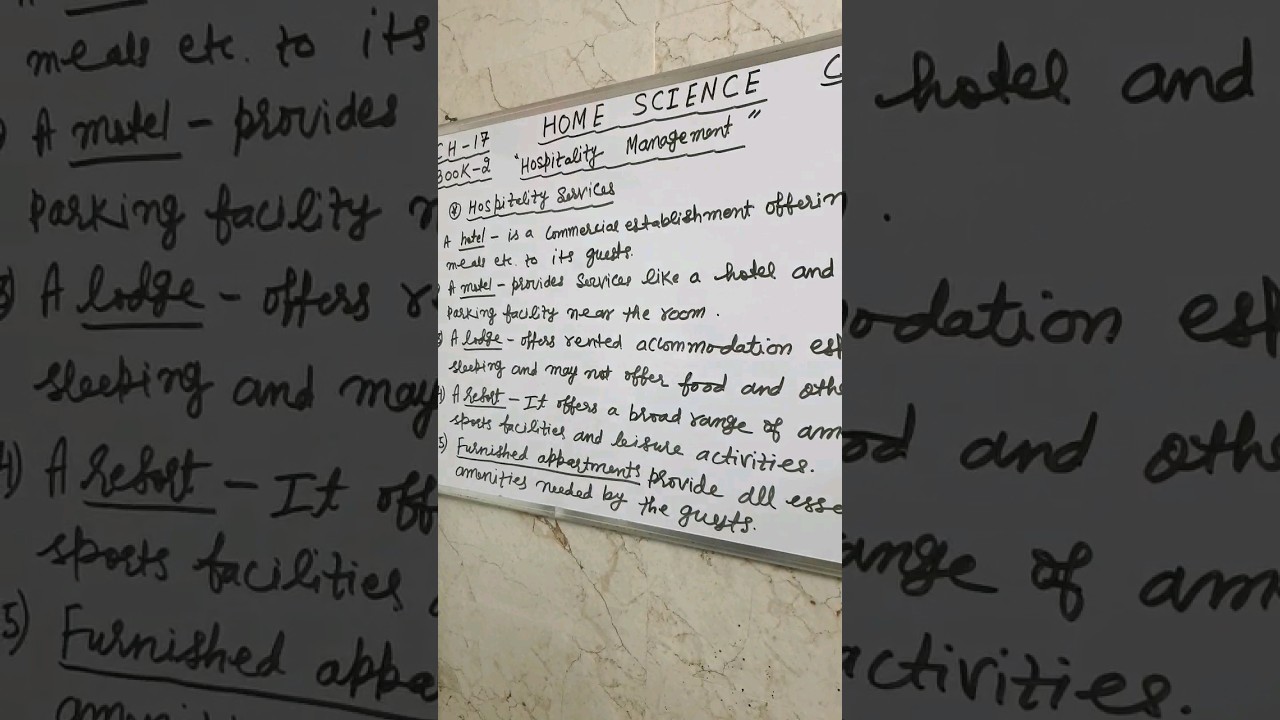 HOME SCIENCE C
CH-17
BOOK-2 "Hospitality Management"
Hospitality Services
A hotel - is a commercial establishment offerin
meals etc. to its guests.
A motel - provides services like a hotel and
parking facility near the room.
3) A lodge - offers rented accommodation est
sleeping and may not offer food and othe
4) A Resort - It offers a broad range of am
sports facilities and leisure activities.
5) Furnished appartments provide all esse
amenities needed by the guests.